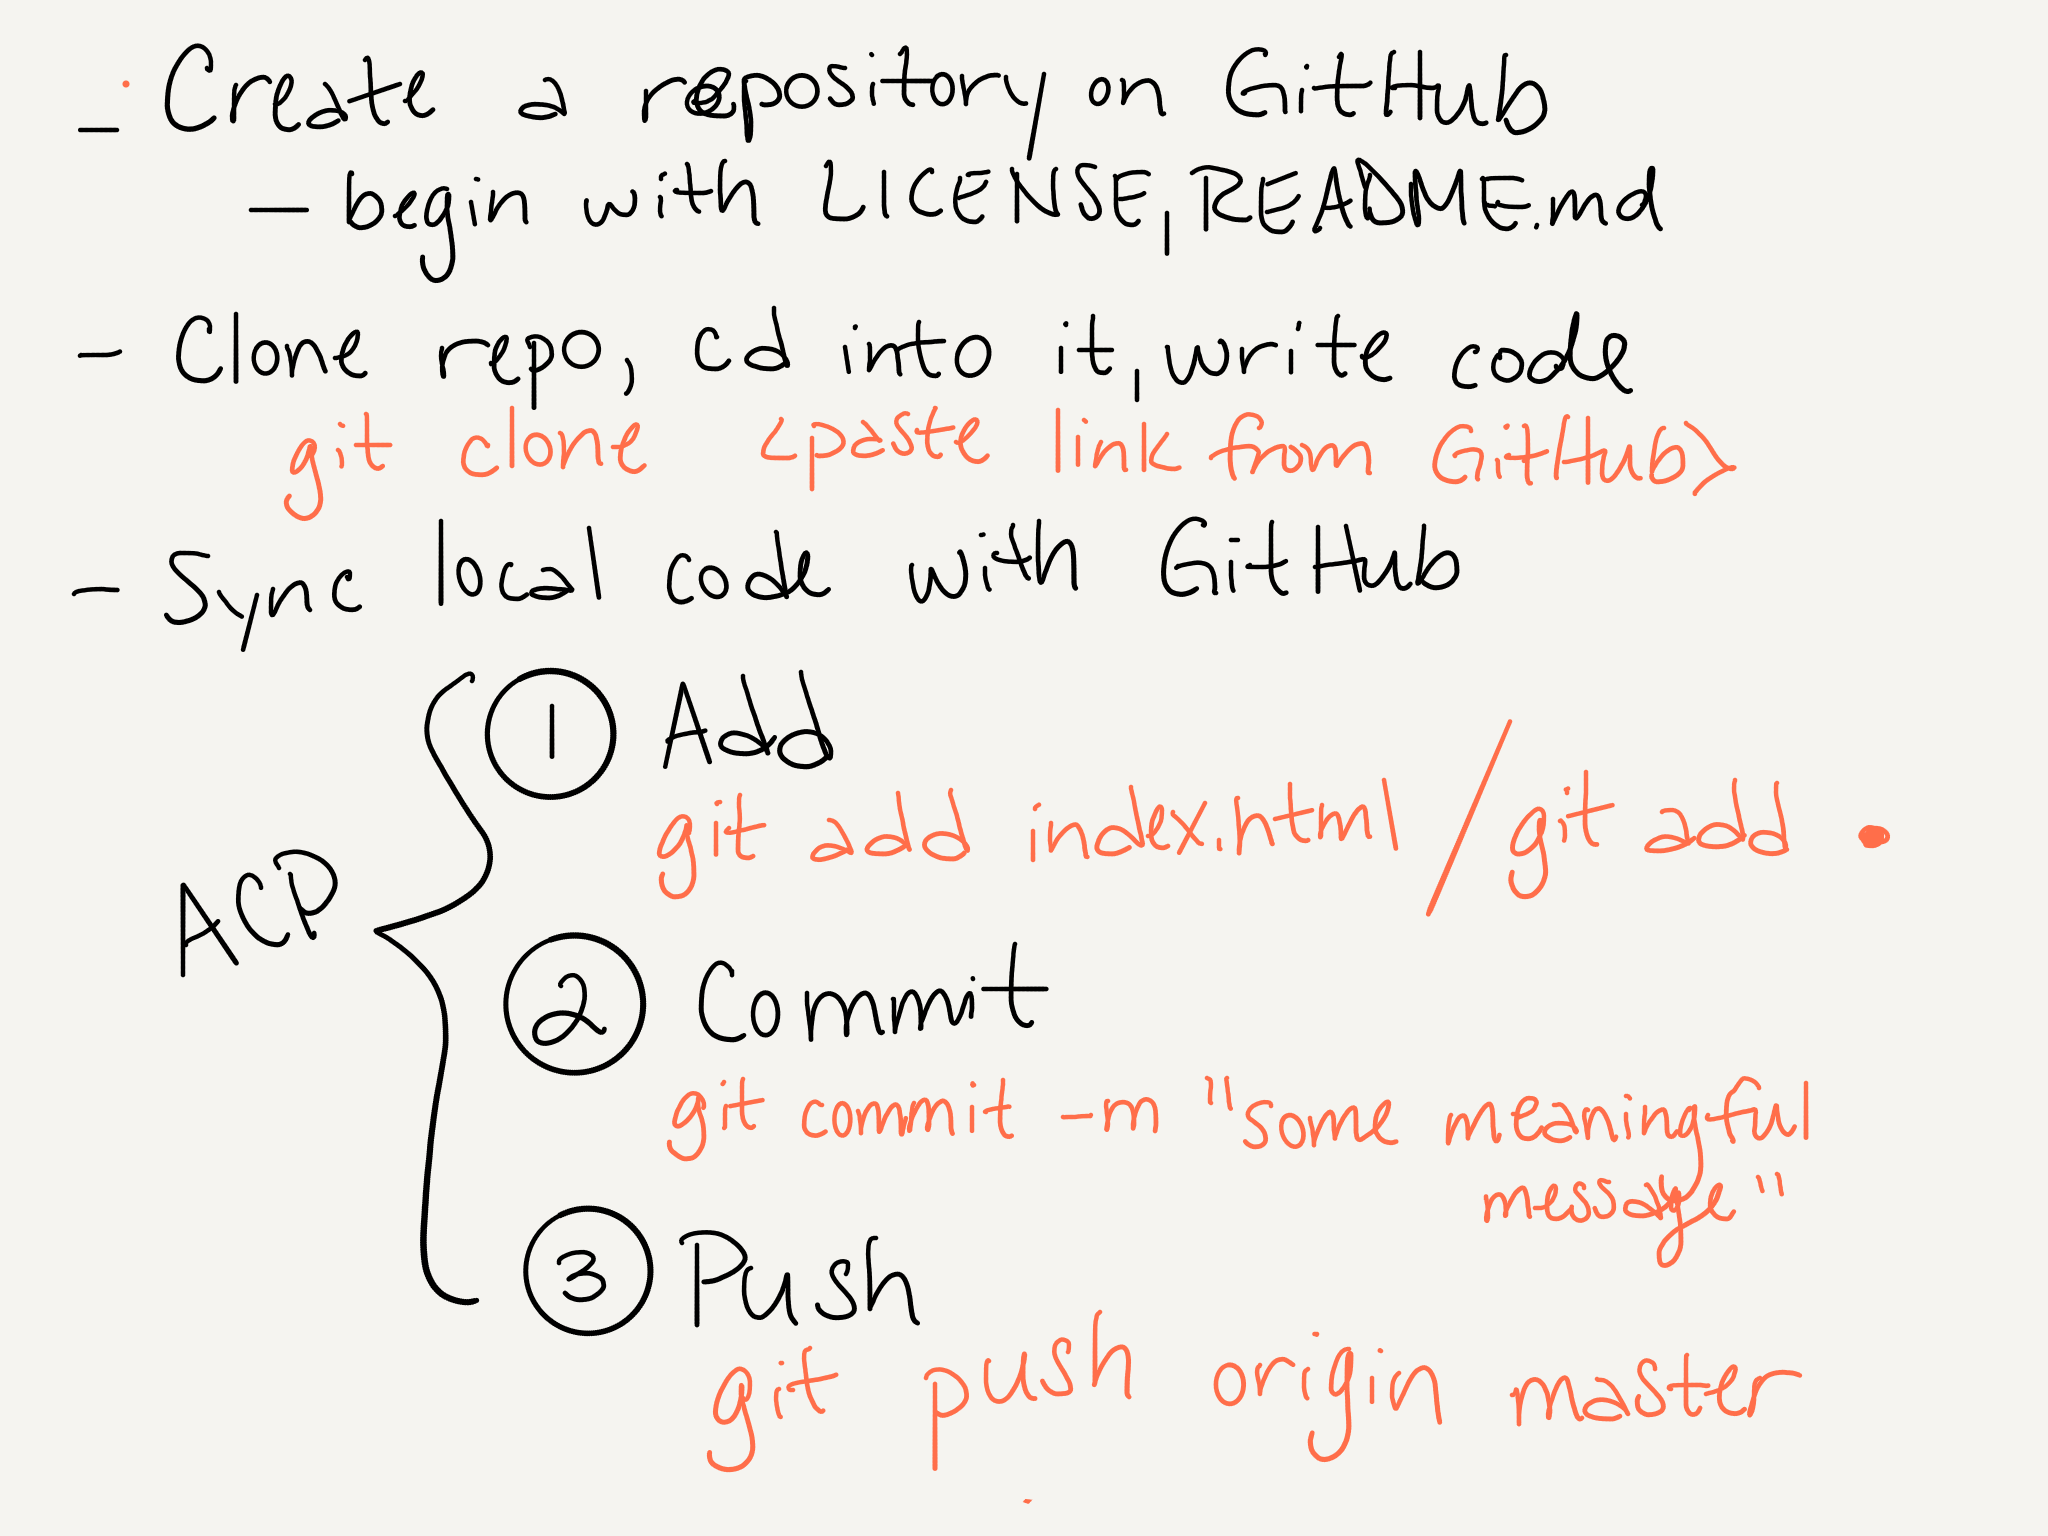 - Create a repository on GitHub
- begin with LICENSE, README.md
- Clone repo, cd into it, write code
git clone <paste link from GitHub>
- Sync local code with GitHub
1 Add
git add index.html / git add .
ACP
2 Commit
git commit -m "some meaningful
message"
3 Push
git push origin master